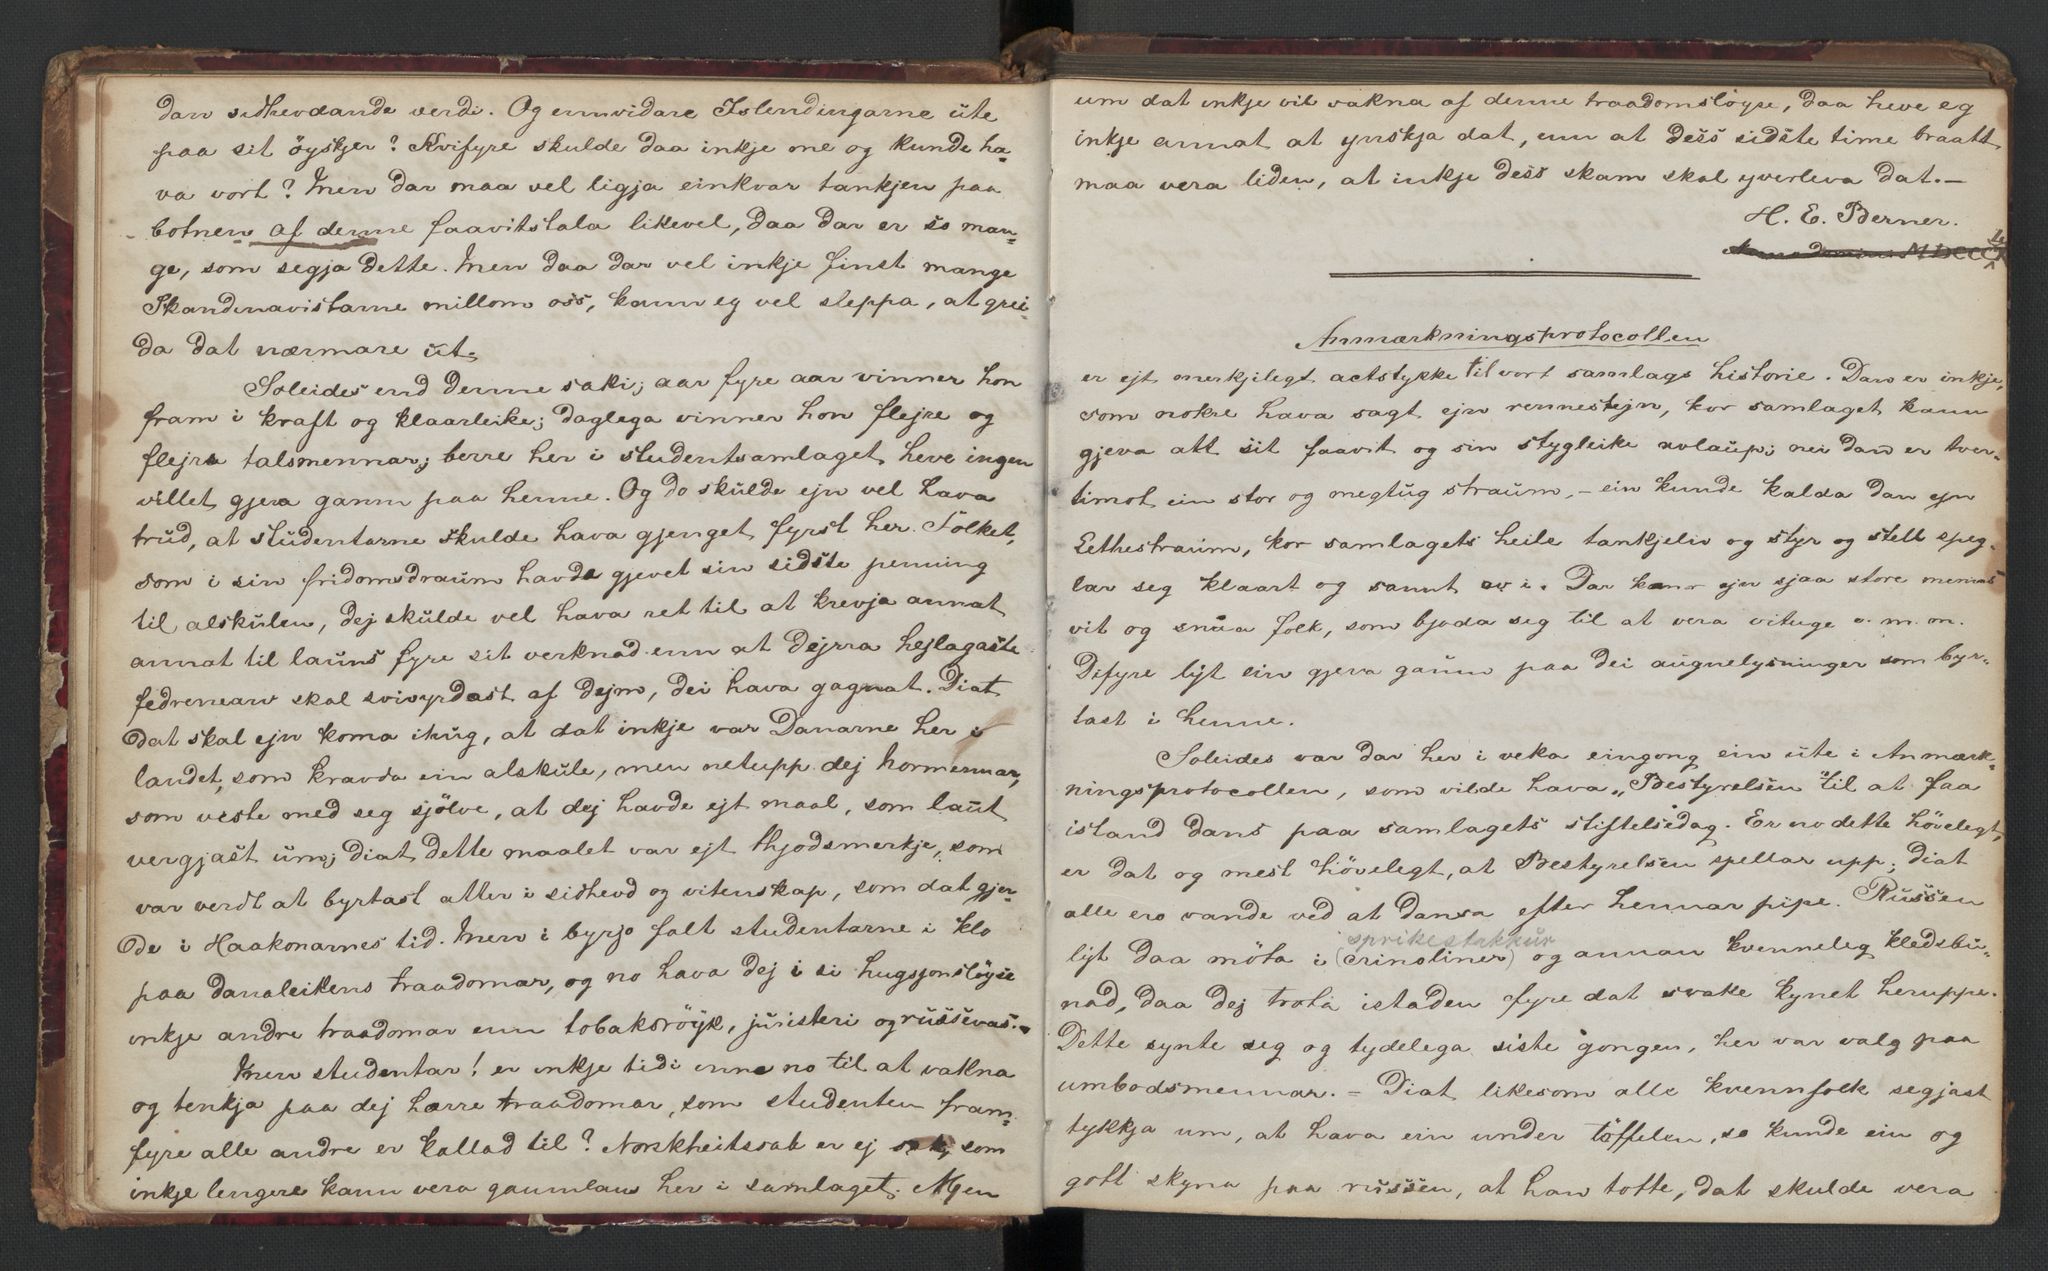 dan sidhevdande verdi. Og ennvidare Islendingarne ute
paa sit öyskjer? Kvifyre skulde daa inkje me og kunde ha-
va vort? Men dar maa vel ligja einkvar tankjen paa
botnen af denne faavitstala likevel, daa dar er so man-
ge, som segja dette. Men daa dar vel inkje finst mange
Skandinavistarne millom oss, kann eg vel sleppa, at grei-
da dat nærmare ut.
Soleides end denne saki; aar fyre aar vinner hon
fram i kraft og klaarleike; daglega vinner hon flejre og
flejre talsmennar; berre her i studentsamlaget heve ingen
villet gjera gaum paa henne. Og do skulde ejn vel hava
trud, at studentarne skulde hava gjenget fyrst her. Folket,
som i sin fridomsdraum havde gjevet sin sidste penning
til alskulen, dej skulde vel hava ret til at krevja annat
annat til launs fyre sit verknad enn at dejrra hejlagaste
fedrenearv skal svivyrdast af dejm, dei hava gagnat. Diat
dat skal ejn koma ihug, at dat inkje var Danarne her i
landet, som kravda ein alskule, men netupp dej Normennar,
som viste med seg sjölve, at dej havde ejt maal, som laut
vergjast um; diat dette maalet var ejt thjodsmerkje, som
var verdt at byrtast atter i sidhevd og vitenskap, som dat gjer-
de i Haakonarnes tid. Men i byrjo falt studentarne i klo
paa danaleikens traadomar, og no hava dej i si hugsjonslöyse
inkje andre traadomar enn tobaksröyk, juristeri og russevas.-
Men studentar! er inkje tidi inne no til at vakna
og tenkja paa dej hærre traadomar, som studenten fram-
fyre alle andre er kallad til? Norskheitssak er ej sak, som
inkje lengere kann vera gaumlaus her i samlaget. Myen
um dat inkje vil vakna af denne traadomslöyse, daa heve eg
inkje annat at ynskja dat, enn at dess sidste time braatt
maa vera liden, at inkje dess skam skal yverleva dat.-
H. E. Berner.
Anno domini MDCCCLX
Anmærkningsprotocollen
er ejt merkjelegt actstykke til vort samlags historie. Dan er inkje,
som nokre hava sagt ejn rennestejn, kor samlaget kann
gjeva att sit faavit og sin stygleike avlaup; nei dan er tver-
timot ein stor og megtug straum, - ein kunde kalda dan ejn
Lethestraum, kor samlagets heile tankjeliv og styr og stell speg-
lar seg klaart og sannt av i. Dar kann ejn sjaa store menns
vit og snaa folk, som bjoda seg til at vera vituge o. m. m.
Difyre lyt ein gjeva gaum paa dei augnelysninger som byr-
tast i henne.
Soleides var dar her i veka eingong ein ute i Anmærk-
ningsprotocollen, som vilde hava „Bestyrelsen" til at faa
istand dans paa samlagets stiftelsedag. Er no dette hövelegt,
er dat og mest hövelegt, at Bestyrelsen spellar upp; diat
alle ero vande ved at dansa efter hennar pipe. Russen
sprikestakkur
lyt daa möta i (Crinoliner) og annan kvenneleg kledsbu-
nad, daa dej trota istaden fyre dat svake kynet heruppe.
Dette synte seg og tydelega siste gongen, her var valg paa
umbodsmennar. - Diat likesom alle kvennfolk segjast
tykkja um, at hava ein under töffelen, so kunde ein og
gott skyna paa russen, at han totte, dat skulde vera